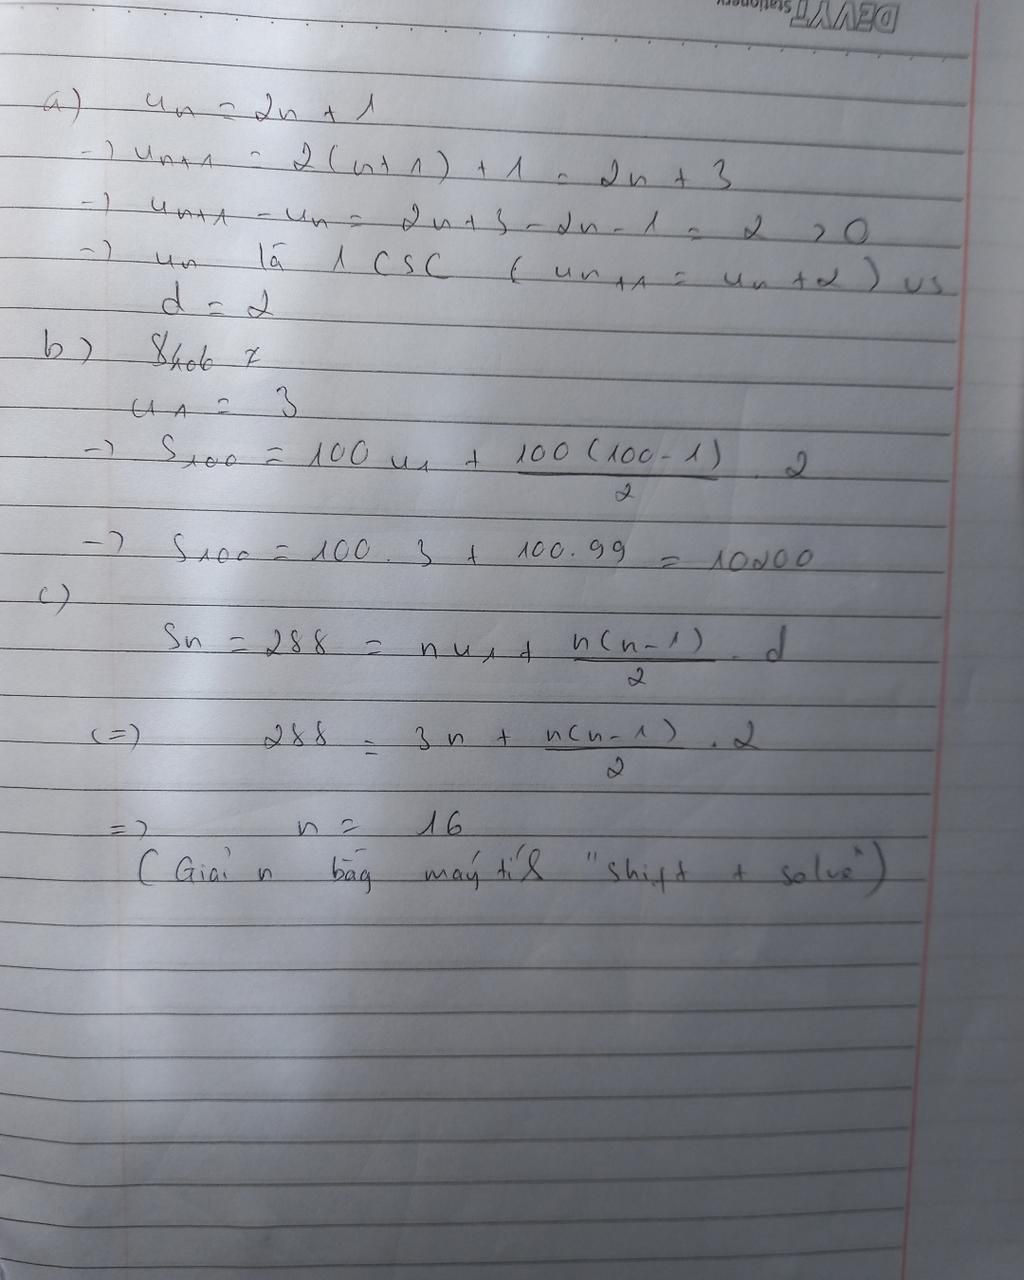 DEVYT stationery
a) uₙ = 2n + 1
-> uₙ₊₁ = 2(n+1) + 1 = 2n + 3
-> uₙ₊₁ - uₙ = 2n+3 - 2n - 1 = 2 > 0
-> uₙ là 1 CSC (uₙ₊₁ = uₙ + 2) vs
d = 2
b)
u₁ = 3
-> S₁₀₀ = 100 u₁ + \frac{100(100-1)}{2} . 2
-> S₁₀₀ = 100 . 3 + 100.99 = 10200
c)
Sn = 288 = nu₁ + \frac{n(n-1)}{2} . d
<=> 288 = 3n + \frac{n(n-1)}{2} . 2
=> n = 16
(Giải n bằg máy tíh "shift + solve")